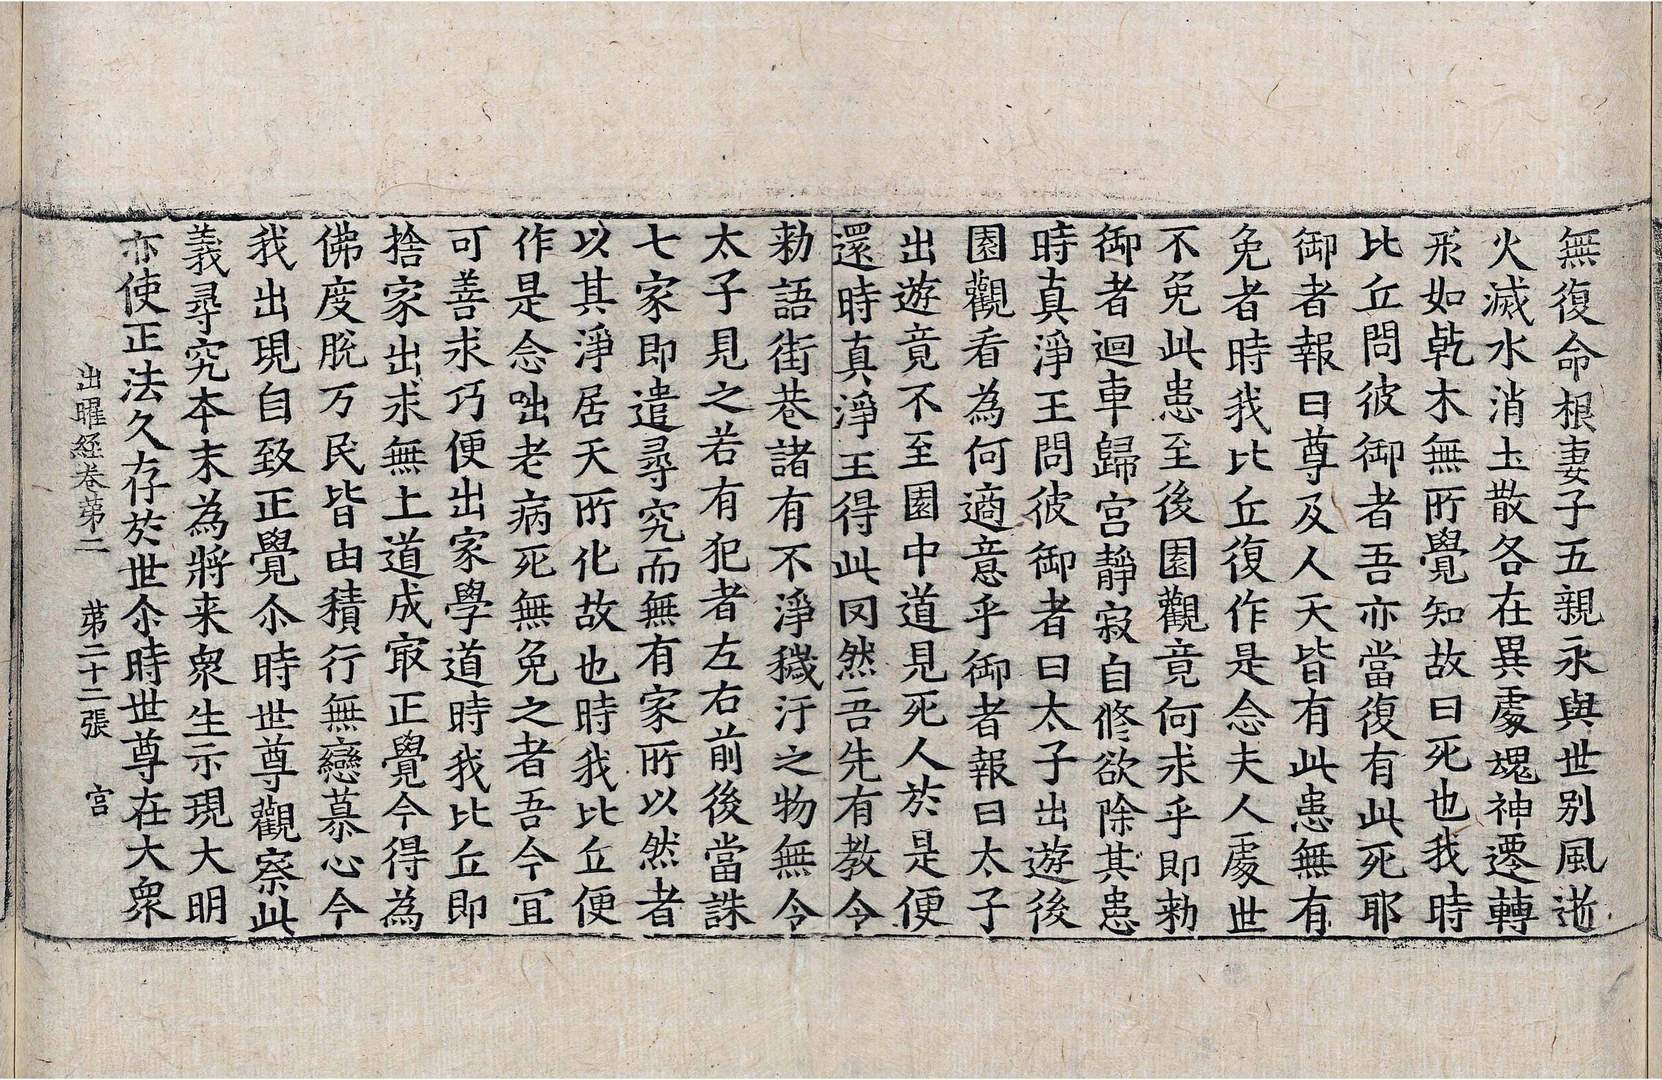 無復命根妻子五親永與世別風逝
火滅水消圡散各在異處塊神遷轉
形如乹木無所覺知故曰死也我時
比丘問彼御者吾亦當復有此死耶
御者報曰尊及人天皆有此患無有
免者時我比丘復作是念夫人處世
不免此患至後園觀竟何求乎即勑
御者迴車歸宮靜寂自修欲除其患
時真淨王問彼御者曰太子出遊後
園觀看為何適意乎御者報曰太子
出遊竟不至園中道見死人於是便
還時真淨王得此罔然吾先有教令
勑語街巷諸有不淨穢汙之物無令
太子見之若有犯者左右前後當誅
七家即遣尋究而無有家所以然者
以其淨居天所化故也時我比丘便
作是念咄老病死無免之者吾今宜
可善求巧便出家學道時我比丘即
捨家出求無上道成㝡正覺今得為
佛度脫万民皆由積行無戀慕心今
我出現自致正覺尒時世尊觀察此
義尋究本末為將来衆生示現大明
亦使正法久存於世尒時世尊在大衆
出曜經卷苐二 苐二十二張 宮